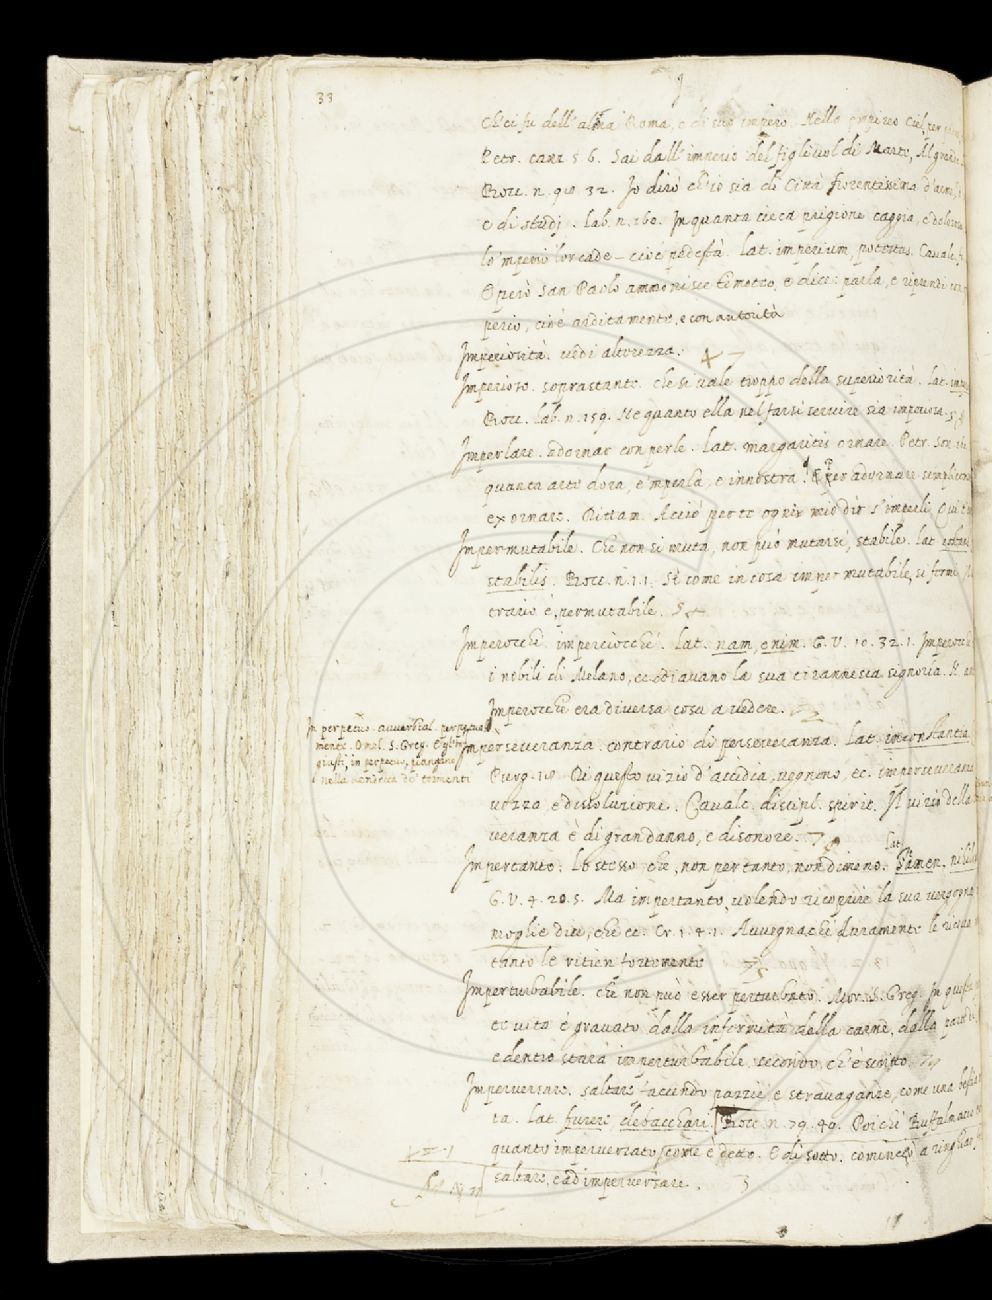 33
I
Ch'ei fu dell'alma Roma, e di suo impero. Nello empireo Ciel, per
Petr. canz. 5. 6. Sai dall'imperio del figliuol di Marte, Al grande
Bocc. n. 32. Io dirò ch'io sia di Città fiorentissima d'arme,
e di studj. Lab. n. 160. In quanta cieca prigione caggia, e dolorosa
lo'mperio lor cade – cioè podestà. Lat. imperium, potestas. Cavalc.
E però San Paolo ammonisce Timoteo, e dice: parla, e riprendi con
perio, cioè arditamente, e con autorità
Imperiosità. vedi alterezza.
Imperioso. soprastante. che si vale troppo della superiorità. Lat.
Bocc. lab. n. 159. Ne quanto ella nel farsi servire sia imperiosa.
Imperlare. adornar con perle. Lat. margaritis ornare. Petr. Son.
quanta arte dora, e'mperla, e innostra. E per adornare semplicem
exornare. Rittm. Acciò per te ogni mio dir s'imperli,
Impermutabile. Che non si muta, non può mutarsi, stabile. Lat.
stabilis. Bocc. n. 1. 1. Si come in cosa impermutabile, si fermi
trario è, permutabile.
Imperocchè. imperciocchè. Lat. nam, enim. G. V. 10. 32. 1. Imperocchè
i nobili di Melano, ec. odiavano la sua tirannesca signoria.
Imperocchè era diversa cosa a vedere.
In perpetuo. avverbial. perpetua
mente. Omel. S. Greg. E gl'in
giusti, in perpetuo, piangine
nella vendetta de' tormenti
Imperseveranza. contrario di perseveranza. Lat. inconstantia
Purg. 18. Di questo vizio d'accidia, vegnono, ec. imperseveran
vezza, e dissoluzione. Cavalc. discipl. spirit. Il vizio della
veranza è di gran danno, e disonore.
Impertanto. Lo stesso che, non pertanto, nondimeno. Lat. tamen, nihilo
G. V. 4. 20. 5. Ma impertanto, volendo ricoprire la sua vergogna
moglie dite, che ec. Cr. 1. 4. 1. Avvegnachè duramente le riceva
tanto le ritien fortemente
Imperturbabile. che non può esser perturbato. Mor. S. Greg. In questa
te vita è gravato dalla infermità della carne, dalla
e dentro starà imperturbabile, secondo, ch'è scritto.
Imperversare. saltare facendo pazzie, e stravaganze, come una bestia
ta. Lat. furere, debacchari. Bocc. n. 79. 49. Poichè Buffalmacco
quanto imperversato, come è detto. E di sotto. cominciò a ringhiar,
saltare, e ad imperversare.